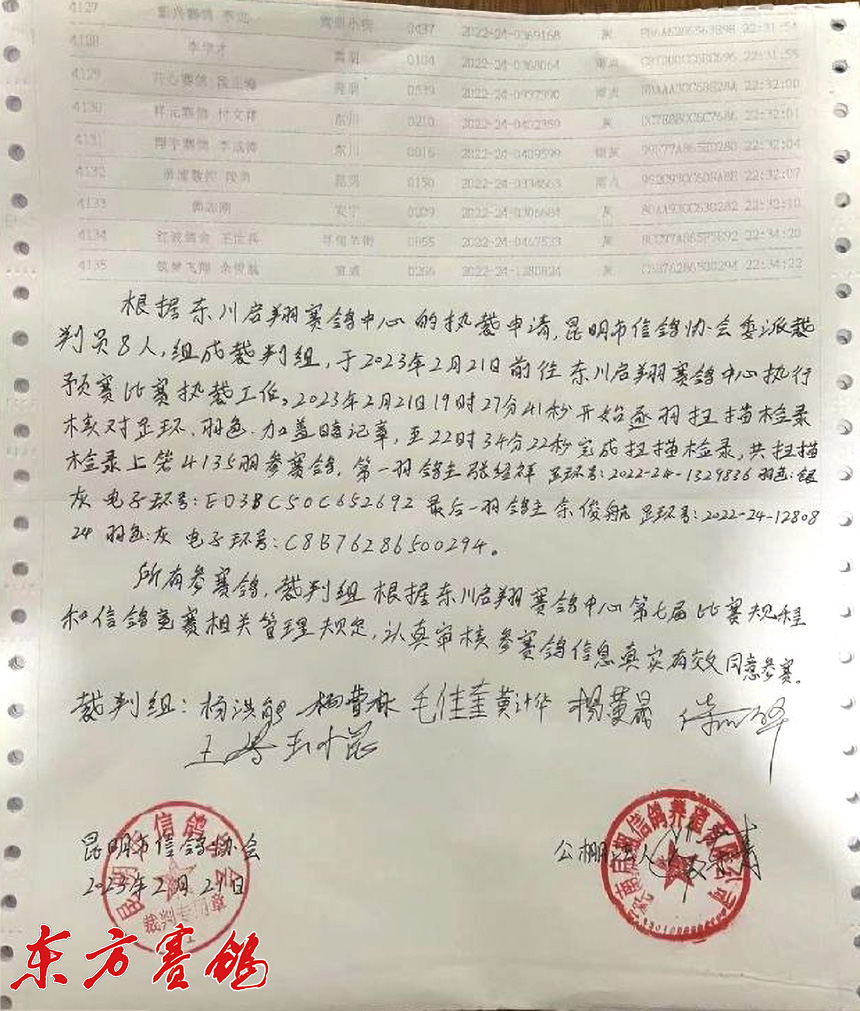 4127 李 0437 2022-24-0369168 灰 22:31:54
4128 李学才 嵩明 0104 2022-24-0368064 雨点 22:31:55
4129 开心赛鸽 昆明 0539 雨点 22:32:00
4130 祥元赛鸽 付文祥 东川 0210 2022-24-0402359 灰 22:32:01
4131 李成涛 东川 0016 2022-24-0409599 银灰 22:32:04
4132 昆明 0150 2022-24-0334663 雨点 22:32:07
4133 郭志刚 安宁 2022-24-0306684 灰 22:32:10
4134 红波鸽舍 0855 2022-24-0467533 灰 22:34:20
4135 筑梦飞翔 余俊航 宣威 0266 2022-24-1280824 灰 C8B76286500294 22:34:22
根据东川启翔赛鸽中心的执裁申请,昆明市信鸽协会委派裁
判员8人,组成裁判组,于2023年2月21日前往东川启翔赛鸽中心执行
预赛比赛执裁工作。2023年2月21日19时27分41秒开始逐羽扫描检录
核对足环、羽色、加盖暗记章,至22时34分22秒完成扫描检录,共扫描
检录上笼4135羽参赛鸽,第一羽鸽主张绍祥 足环号:2022-24-1329836 羽色:银
灰 电子环号:ED3BC50C652692 最后一羽鸽主余俊航 足环号:2022-24-12808
24 羽色:灰 电子环号:C8B76286500294。
所有参赛鸽,裁判组根据东川启翔赛鸽中心第七届比赛规程
和信鸽竞赛相关管理规定,认真审核参赛鸽信息真实有效同意参赛。
裁判组:杨洪能 杨雪林 毛佳奎 黄计华 杨黄晟
昆明市信鸽协会
2023年2月21日
裁判专用章
公棚法人
东方赛鸽